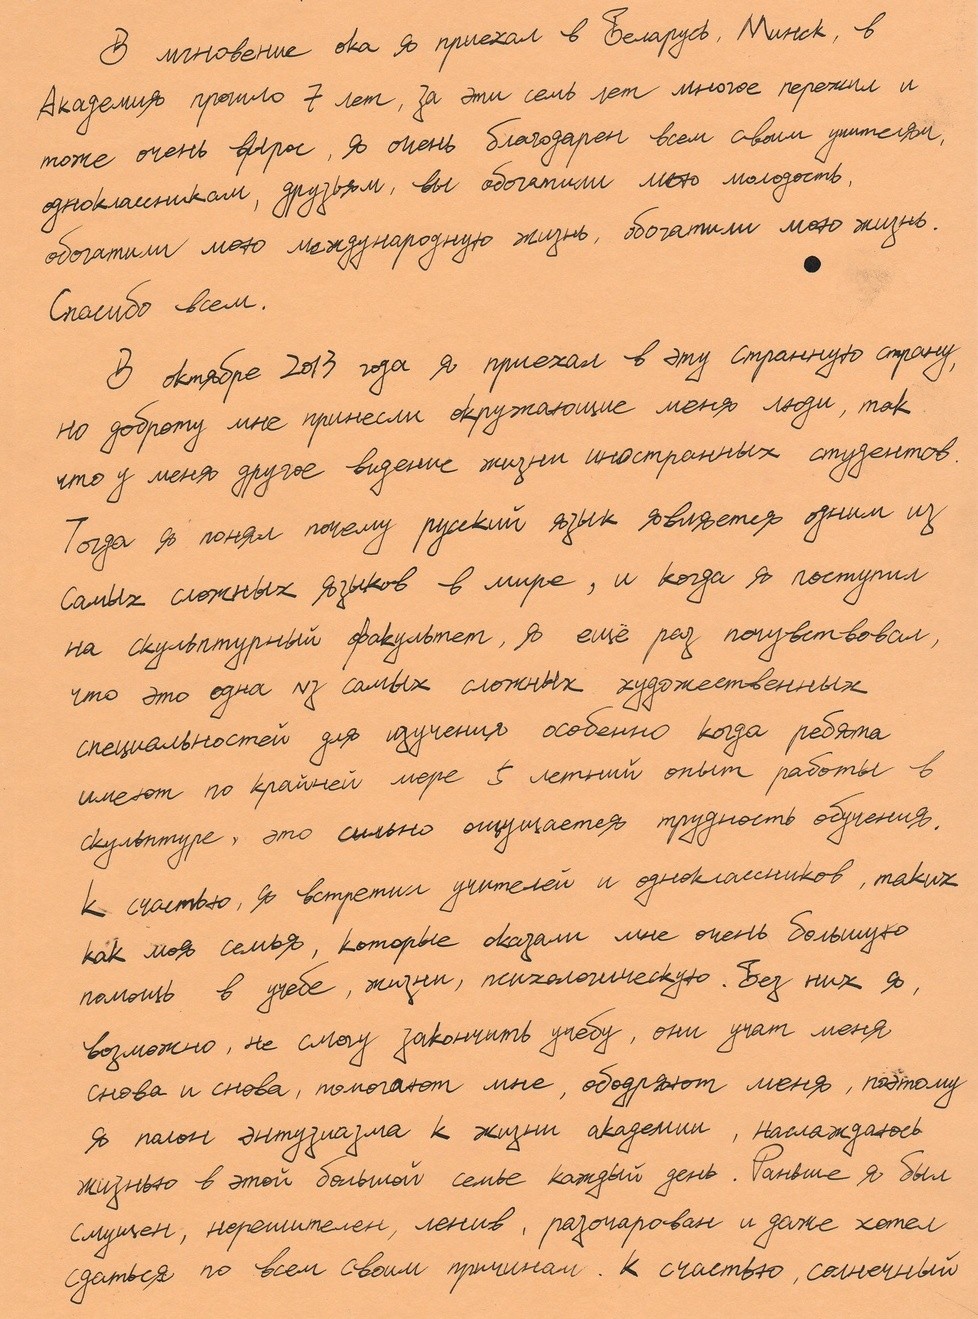 В мгновение ока я приехал в Беларусь, Минск, в
Академия прошло 7 лет, за эти семь лет многое пережил и
тоже очень вырос, я очень благодарен всем своим учителям,
одноклассникам, друзьям, вы обогатили мою молодость,
обогатили мою международную жизнь, обогатили мою жизнь.
Спасибо всем.
В октябре 2013 года я приехал в эту странную страну,
но доброту мне принесли окружающие меня люди, так
что у меня другое видение жизни иностранных студентов.
Тогда я понял почему русский язык является одним из
самых сложных языков в мире, и когда я поступил
на скульптурный факультет, я ещё раз почувствовал,
что это одна из самых сложных художественных
специальностей для изучения особенно когда ребята
имеют по крайней мере 5 летний опыт работы в
скульптуре, это сильно ощущается трудность обучения.
К счастью, я встретил учителей и одноклассников, таких
как моя семья, которые оказали мне очень большую
помощь в учебе, жизни, психологическую. Без них я,
возможно, не смогу закончить учебу, они учат меня
снова и снова, помогают мне, ободряют меня, поэтому
я полон энтузиазма к жизни академии, наслаждаюсь
жизнью в этой большой семье каждый день. Раньше я был
смущен, нерешителен, ленив, разочарован и даже хотел
сдаться по всем своим причинам. К счастью, солнечный